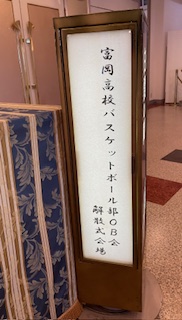 富岡高校バスケットボール部OB会
解散式会場